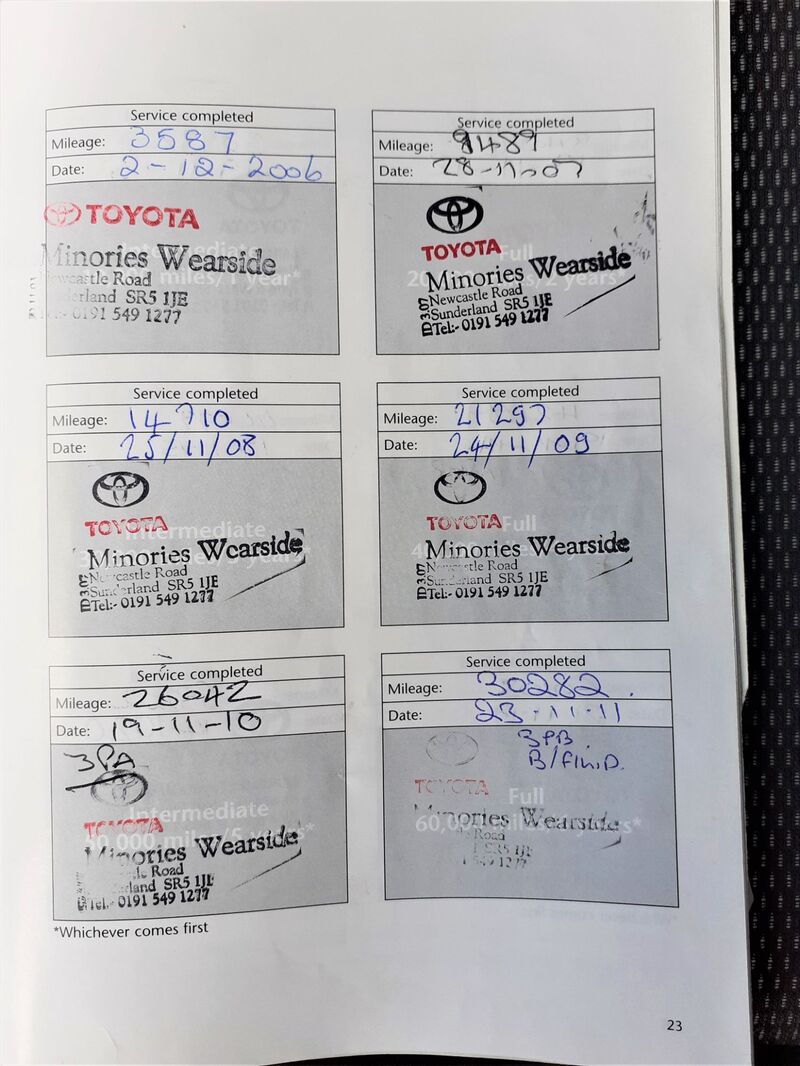 Service completed
Mileage: 3587
Date: 2-12-2006
TOYOTA
Intermediate
Minories Wearside
miles/1 year*
Newcastle Road
Sunderland SR5 1JE
Tel:- 0191 549 1277
Service completed
Mileage: 9489
Date: 28-11-07
TOYOTA
Full
Minories Wearside
2 years*
Newcastle Road
Sunderland SR5 1JE
Tel:- 0191 549 1277
Service completed
Mileage: 14710
Date: 25/11/08
TOYOTA
Intermediate
Minories Wearside
years*
Newcastle Road
Sunderland SR5 1JE
Tel:- 0191 549 1277
Service completed
Mileage: 21297
Date: 24/11/09
TOYOTA
Full
Minories Wearside
Newcastle Road
Sunderland SR5 1JE
Tel:- 0191 549 1277
Service completed
Mileage: 26042
Date: 19-11-10
3PA
Intermediate
TOYOTA
50,000 miles/5 years*
Minories Wearside
Road
Sunderland SR5 1JE
Tel:- 0191 549 1277
Service completed
Mileage: 30282.
Date: 23-11-11
3PB.
B/Flu.D.
TOYOTA
Full
Minories Wearside
60,000 miles/6 years*
Road
SR5 1JE
549 1277
*Whichever comes first
23